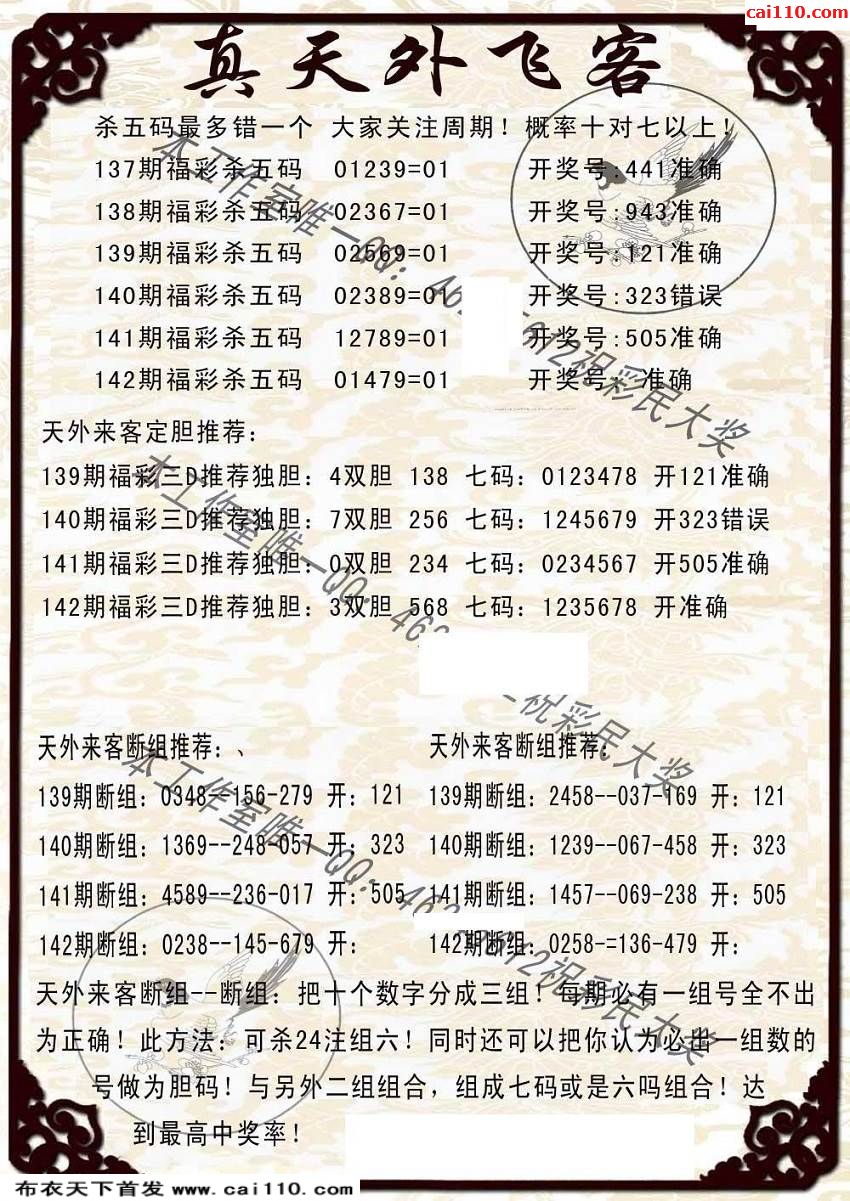 cai110.com
真天外飞客
杀五码最多错一个 大家关注周期！概率十对七以上！
137期福彩杀五码 01239=01 开奖号:441准确
138期福彩杀五码 02367=01 开奖号:943准确
139期福彩杀五码 02569=01 开奖号:121准确
140期福彩杀五码 02389=01 开奖号:323错误
141期福彩杀五码 12789=01 开奖号:505准确
142期福彩杀五码 01479=01 开奖号: 准确
天外来客定胆推荐:
139期福彩三D推荐独胆: 4双胆 138 七码: 0123478 开121准确
140期福彩三D推荐独胆: 7双胆 256 七码: 1245679 开323错误
141期福彩三D推荐独胆: 0双胆 234 七码: 0234567 开505准确
142期福彩三D推荐独胆: 3双胆 568 七码: 1235678 开准确
天外来客断组推荐:、 天外来客断组推荐:
139期断组: 0348--156-279 开: 121 139期断组: 2458--037-169 开: 121
140期断组: 1369--248-057 开: 323 140期断组: 1239--067-458 开: 323
141期断组: 4589--236-017 开: 505 141期断组: 1457--069-238 开: 505
142期断组: 0238--145-679 开: 142期断组: 0258-=136-479 开:
天外来客断组--断组: 把十个数字分成三组！每期必有一组号全不出
为正确！此方法: 可杀24注组六！同时还可以把你认为必出一组数的
号做为胆码！与另外二组组合，组成七码或是六吗组合！达
到最高中奖率！
本工作室唯一QQ: 46
612祝彩民大奖
本工作室唯一QQ: 46
祝彩民大奖
本工作室唯一QQ: 46
612祝彩民大奖
布衣天下首发 www.cai110.com